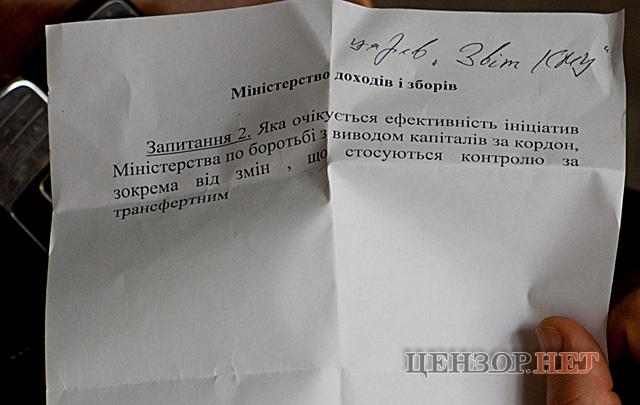 Звіт КМУ"
Міністерство доходів і зборів
Запитання 2. Яка очікується ефективність ініціатив
Міністерства по боротьбі з виводом капіталів за кордон,
зокрема від змін , що стосуються контролю за
трансфертним
ЦЕНЗОР.НЕТ